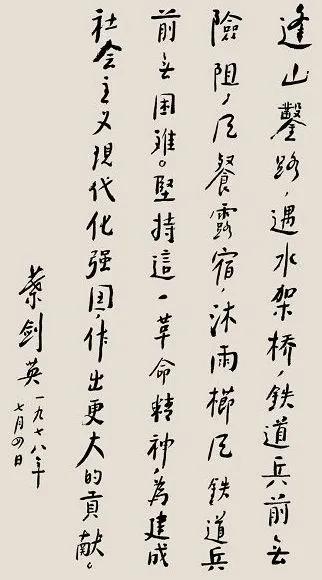 逢山鑿路，遇水架桥，鉄道兵前无
險阻，风餐露宿，沐雨櫛风鉄道兵
前无困难。堅持這一革命精神，為建成
社会主义現代化强国，作出更大的貢献。
葉剑英
一九七八年
七月四日